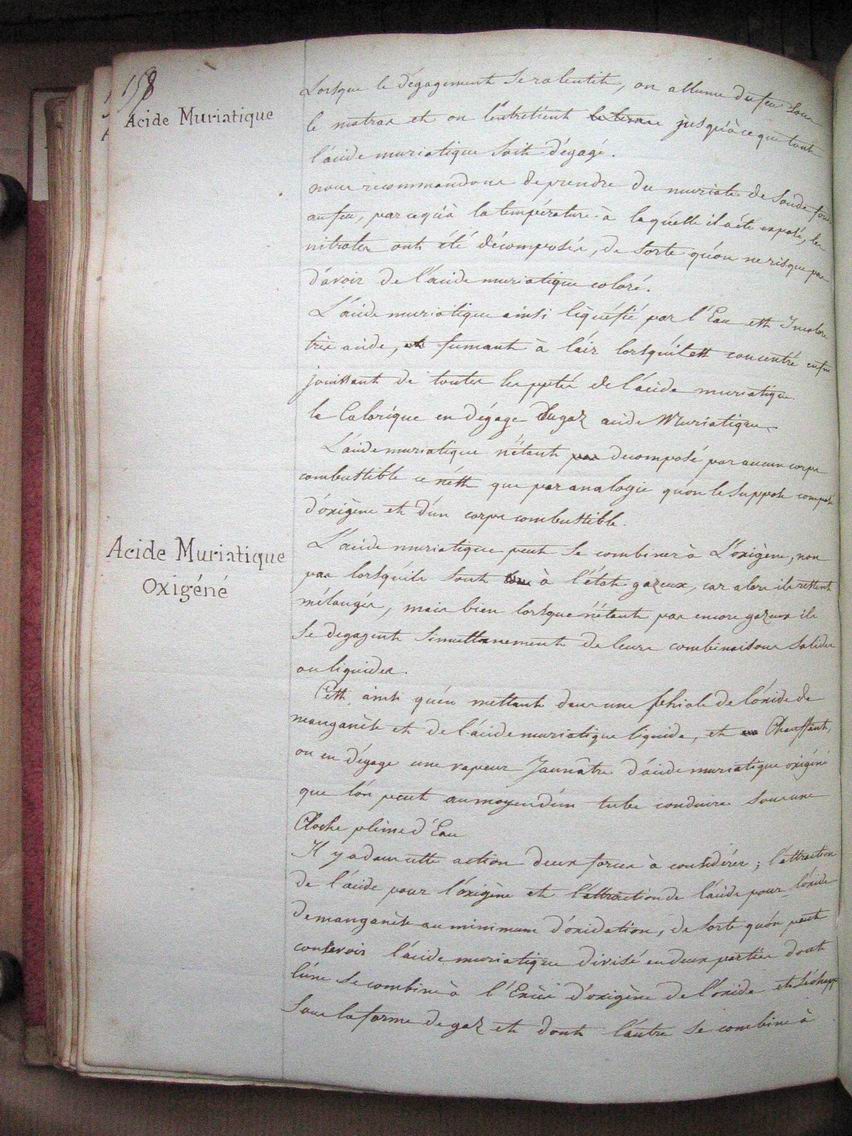 158
Acide Muriatique
Lorsque le dégagement se ralentit, on allume du feu sous
le matras et on l'entretient jusqu'à ce que tout
l'acide muriatique soit dégagé.
nous recommandons de prendre du muriate de soude
au feu, parcequ'à la température à laquelle il a été exposé, les
nitrates ont été décomposés, de sorte qu'on ne risque pas
d'avoir de l'acide muriatique coloré.
L'acide muriatique ainsi liquéfié par l'Eau est Incolore
très acide, et fumant à l'air lorsqu'il est concentré enfin
jouissant de toutes les pptés de l'acide muriatique.
le Calorique en dégage du gaz acide Muriatique
L'acide muriatique n'étant pas decomposé par aucun corps
combustible ce n'est que par analogie qu'on le suppose composé
d'oxigène et d'un corps combustible.
Acide Muriatique
Oxigéné
L'acide muriatique peut se combiner à L'oxigène, non
pas lorsqu'ils sont à l'état gazeux, car alors ils restent
mélangés, mais bien lorsque n'étant pas encore gazeux ils
se degagent simultanement de leurs combinaisons solides
ou liquides.
C'est ainsi qu'en mettant dans une phiole de l'oxide de
manganèse et de l'acide muriatique liquide, et Chauffant,
on en dégage une vapeur Jaunâtre d'acide muriatique oxigéné
que l'on peut au moyen d'un tube conduire sous une
Cloche pleine d'Eau
Il y a dans cette action deux forces à considérer; l'attraction
de l'acide pour l'oxigène et l'attraction de l'acide pour l'oxide
de manganèse au minimum d'oxidation, de sorte qu'on peut
concevoir l'acide muriatique divisé en deux parties dont
l'une se combine à l'Excès d'oxigène de l'oxide et s'échappe
sous la forme de gaz et dont l'autre se combine à